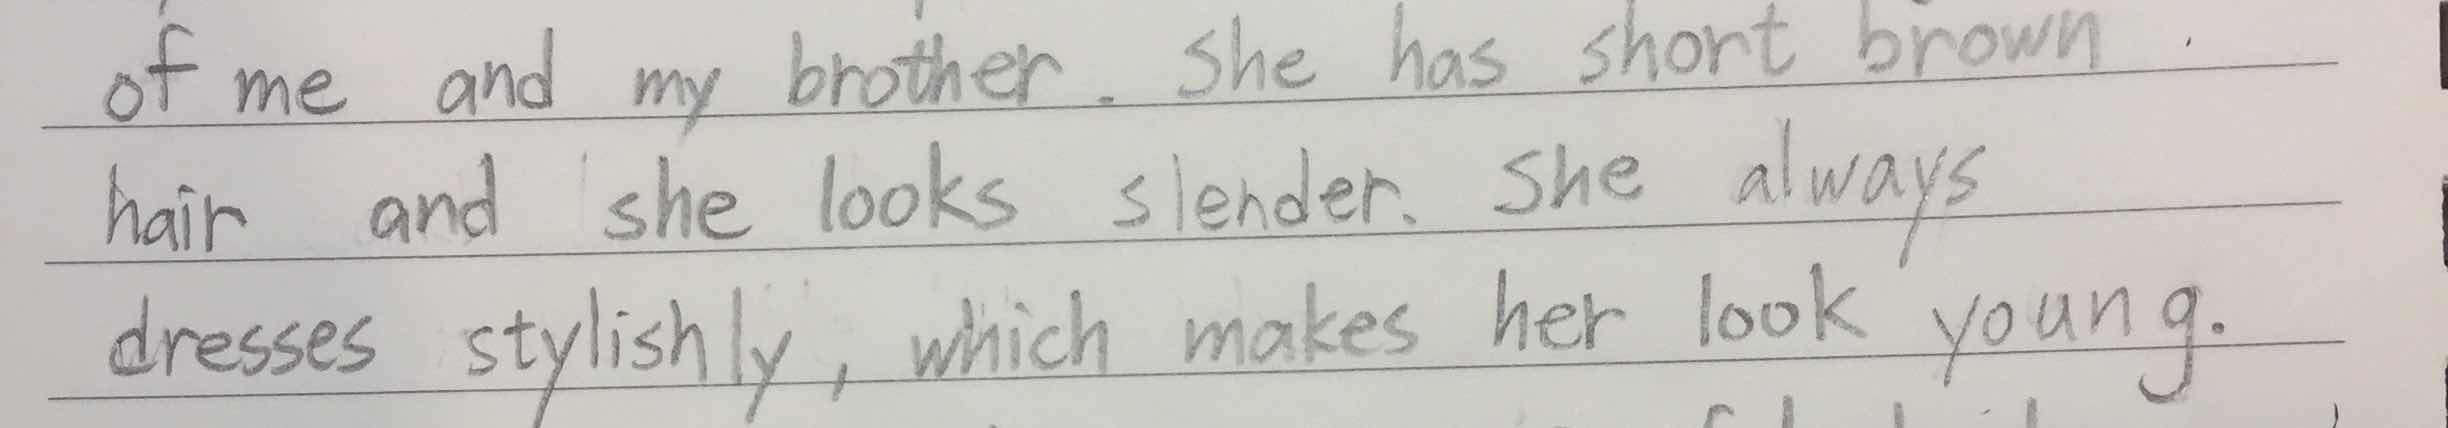 of me and my brother. She has short brown
hair and she looks slender. She always
dresses stylishly, which makes her look young.